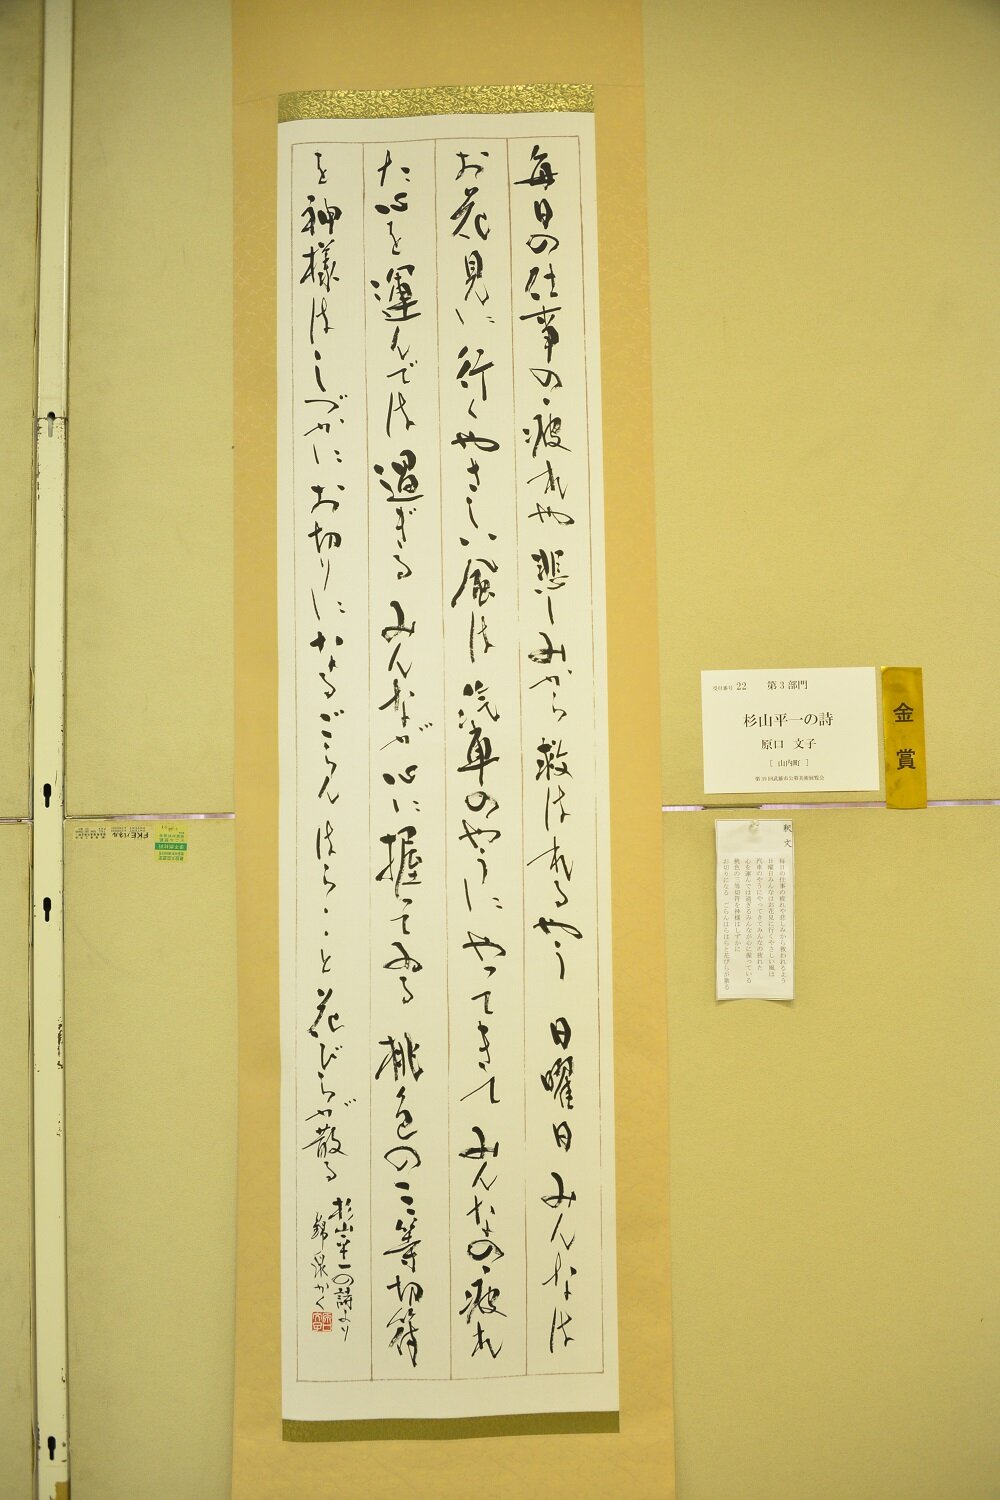 毎日の仕事の疲れや悲しみから救はれるやう 日曜日みんなは
お花見に行くやさしい風は汽車のやうにやってきてみんなの疲れ
た心を運んでは過ぎるみんなが心に握ってゐる桃色の三等切符
を神様はしづかにお切りになるごらんはらはらと花びらが散る
杉山平一の詩より
錦泉かく
受付番号 22 第3部門
杉山平一の詩
原口 文子
[ 山内町 ]
第39回武雄市公募美術展覧会
金賞
釈文
毎日の仕事の疲れや悲しみから救われるよう
日曜日みんなはお花見に行くやさしい風は
汽車のやうにやってきてみんなの疲れた
心を運んでは過ぎるみんなが心に握っている
桃色の三等切符を神様はしずかに
お切りになる ごらんはらはらと花びらが散る
FKEパネル